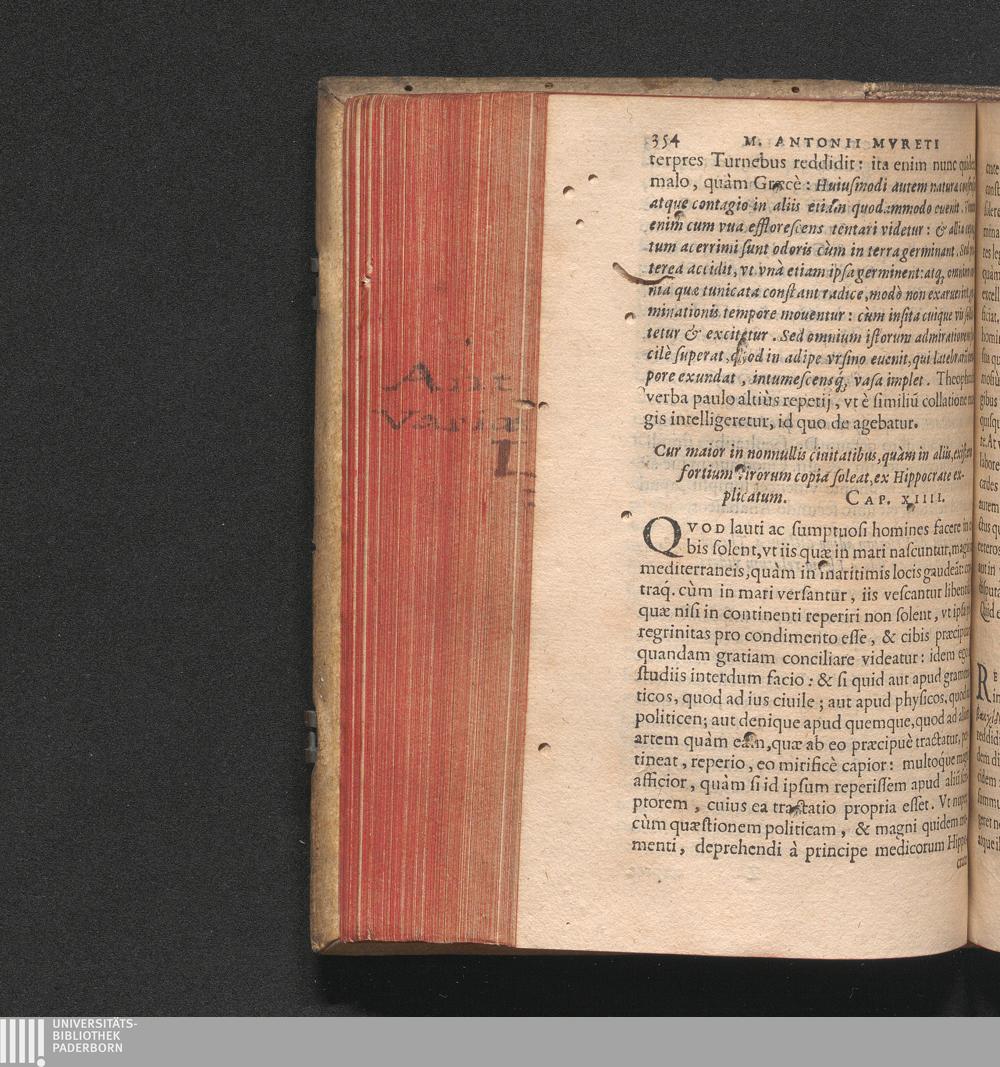 354 M. ANTONII MVRETI
terpres Turnebus reddidit: ita enim nunc
malo, quàm Græcè: Huiuſmodi autem natura
atque contagio in aliis etiam quodammodo euenit.
enim cum vua effloreſcens tentari videtur: & allia
tum acerrimi ſunt odoris cùm in terra germinant. Sed
terea accidit, vt vnà etiam ipſa germinent: atq́,
nia quæ tunicata conſtant radice, modò non exaruerint,
minationis tempore mouentur: cùm inſita cuique vis
tetur & excitetur. Sed omnium iſtorum admirationem
cilè ſuperat, quod in adipe vrſino euenit, qui
pore exundat, intumeſcensq́, vaſa implet. Theophraſti
verba paulo altiùs repetij, vt è ſimiliũ collatione
gis intelligeretur, id quo de agebatur.
Cur maior in nonnullis ciuitatibus, quàm in aliis,
fortium virorum copia ſoleat, ex Hippocrate ex-
plicatum. CAP. XIIII.
QVOD lauti ac ſumptuoſi homines facere in
bis ſolent, vt iis quæ in mari naſcuntur,
mediterraneis, quàm in maritimis locis gaudeãt:
traq́. cùm in mari verſantur, iis veſcantur
quæ niſi in continenti reperiri non ſolent, vt ipſa
regrinitas pro condimento eſſe, & cibis
quandam gratiam conciliare videatur: idem ego
ſtudiis interdum facio: & ſi quid aut apud
ticos, quod ad ius ciuile; aut apud phyſicos, quod
politicen; aut denique apud quemque, quod ad
artem quàm eam, quæ ab eo præcipuè tractatur,
tineat, reperio, eo mirificè capior: multoq́ue
afficior, quàm ſi id ipſum reperiſſem apud
ptorem, cuius ea tractatio propria eſſet. Vt nuper
cùm quæſtionem politicam, & magni quidem
menti, deprehendi à principe medicorum
Ant
Varia
L
UNIVERSITÄTS-
BIBLIOTHEK
PADERBORN